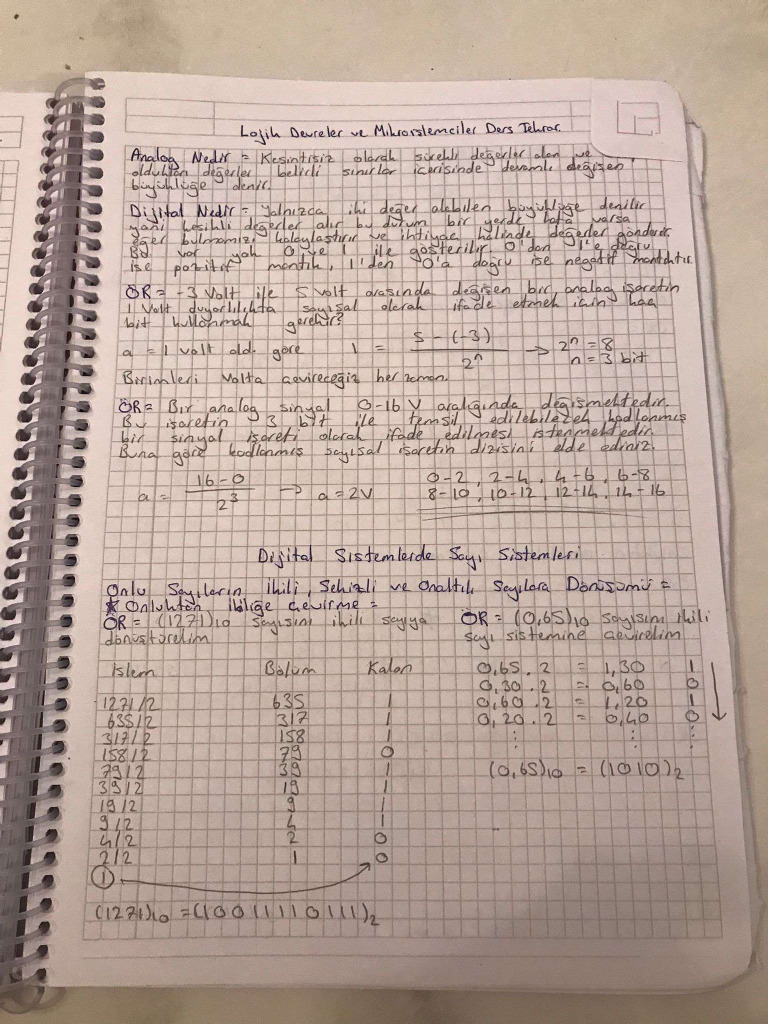 Lojik Devreler ve Mikroişlemciler Ders Tekrar.
Analog Nedir = Kesintisiz olarak sürekli değerler alan ve
oldukları değerler belirli sınırlar içerisinde devamlı değişen
büyüklüğe denir.
Dijital Nedir = Yalnızca iki değer alabilen büyüklüğe denilir
yani kesikli değerler alır bu durum bir yerde hata varsa
eğer bulmamızı kolaylaştırır ve ihtiyaç halinde değerler gönderir.
Bu var yok 0 ve 1 ile gösterilir. 0'dan 1'e doğru
ise pozitif mantık, 1'den 0'a doğru ise negatif mantıktır.
ÖR = -3 Volt ile 5 Volt arasında değişen bir analog işaretin
1 Volt duyarlılıkta sayısal olarak ifade etmek için kaç
bit kullanmak gerekir?
a = 1 volt old. göre 1 = 5 - (-3) / 2ⁿ → 2ⁿ = 8
n = 3 bit
Birimleri Volta çevireceğiz her zaman.
ÖR = Bir analog sinyal 0-16 V aralığında değişmektedir.
Bu işaretin 3 bit ile temsil edilebilecek kodlanmış
bir sinyal işareti olarak ifade edilmesi istenmektedir.
Buna göre kodlanmış sayısal işaretin dizisini elde ediniz.
a = 16-0 / 2³ → a = 2V 0-2, 2-4, 4-6, 6-8
8-10, 10-12, 12-14, 14-16
Dijital Sistemlerde Sayı Sistemleri
Onlu Sayıların İkili, Sekizli ve Onaltılı Sayılara Dönüşümü =
* Onluktan ikiliğe çevirme =
ÖR = (1271)₁₀ sayısını ikili sayıya
dönüştürelim
İşlem Bölüm Kalan
1271/2 635 1
635/2 317 1
317/2 158 1
158/2 79 0
79/2 39 1
39/2 19 1
19/2 9 1
9/2 4 1
4/2 2 0
2/2 1 0
1
(1271)₁₀ = (10011110111)₂
ÖR = (0,65)₁₀ sayısını ikili
sayı sistemine çevirelim
0,65 . 2 = 1,30 1
0,30 . 2 = 0,60 0
0,60 . 2 = 1,20 1
0,20 . 2 = 0,40 0
(0,65)₁₀ = (1010)₂